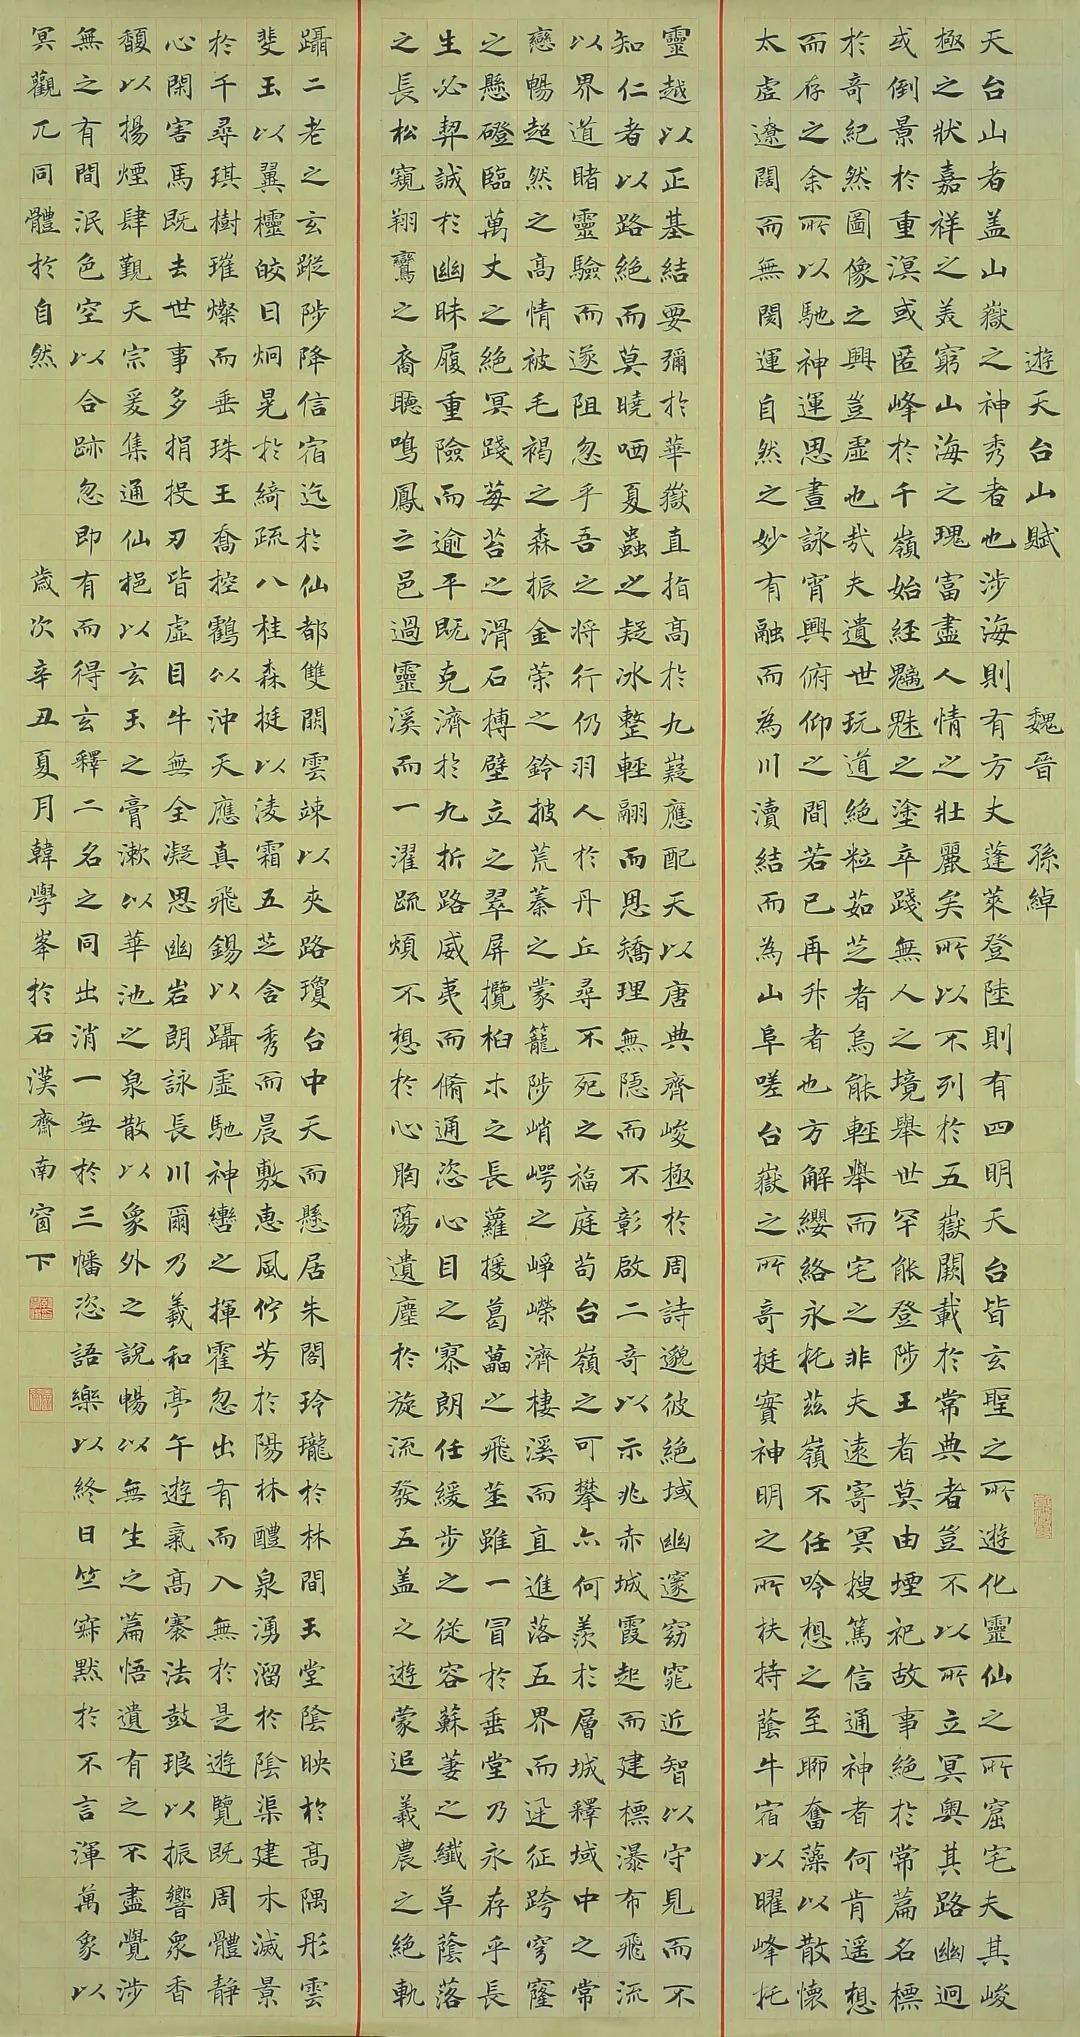 遊天台山賦 魏晉 孫綽
天台山者盖山嶽之神秀者也涉海則有方丈蓬萊登陸則有四明天台皆玄聖之所遊化靈仙之所窟宅夫其峻
極之狀嘉祥之美窮山海之瑰富盡人情之壯麗矣所以不列於五嶽闕載於常典者豈不以所立冥奧其路幽迥
或倒景於重溟或匿峰於千嶺始経魑魅之塗卒踐無人之境舉世罕能登陟王者莫由堙祀故事絕於常篇名標
於奇紀然圖像之興豈虛也哉夫遺世玩道絕粒茹芝者烏能輕舉而宅之非夫遠寄冥搜篤信通神者何肯遥想
而存之余所以馳神運思晝詠宵興俯仰之間若已再升者也方解纓絡永托茲嶺不任吟想之至聊奮藻以散懷
太虛遼闊而無閡運自然之妙有融而為川瀆結而為山阜嗟台嶽之所奇挺實神明之所扶持蔭牛宿以曜峰托
靈越以正基結要彌於華嶽直指高於九嶷應配天以唐典齊峻極於周詩邈彼絕域幽邃窈窕近智以守見而不
知仁者以路絕而莫曉哂夏蟲之疑冰整輕翮而思矯理無隱而不彰啟二奇以示兆赤城霞起而建標瀑布飛流
以界道睹靈驗而遂阻忽乎吾之將行仍羽人於丹丘尋不死之福庭苟台嶺之可攀亦何羨於層城釋域中之常
戀暢超然之高情被毛褐之森振金榮之鈴披荒蓁之蒙籠陟峭崿之崢嶸濟棲溪而直進落五界而迅征跨穹窿
之懸磴臨萬丈之絕冥踐莓苔之滑石搏壁立之翠屏攬桕木之長蘿援葛藟之飛莖雖一冒於垂堂乃永存乎長
生必契誠於幽昧履重險而逾平既克濟於九折路威夷而脩通恣心目之寥朗任緩步之從容蘇萋之纖草蔭落
之長松窺翔鸞之裔聽鳴鳳之邕過靈溪而一濯疏煩不想於心胸蕩遺塵於旋流發五盖之遊蒙追義農之絕軌
躡二老之玄蹤陟降信宿迄於仙都雙闕雲竦以夾路瓊台中天而懸居朱閣玲瓏於林間玉堂陰映於高隅彤雲
斐玉以翼櫺皎日炯晃於綺疏八桂森挺以淩霜五芝含秀而晨敷惠風佇芳於陽林醴泉湧溜於陰渠建木滅景
於千尋琪樹璀燦而垂珠王喬控鶴以沖天應真飛錫以躡虛馳神轡之揮霍忽出有而入無於是遊覽既周體靜
心閑害馬既去世事多捐投刃皆虛目牛無全凝思幽岩朗詠長川爾乃羲和亭午遊氣高褰法鼓琅以振響眾香
馥以揚煙肆覲天宗爰集通仙挹以玄玉之膏漱以華池之泉散以象外之說暢以無生之篇悟遺有之不盡覺涉
無之有間泯色空以合跡忽即有而得玄釋二名之同出消一無於三幡恣語樂以終日竺寂默於不言渾萬象以
冥觀兀同體於自然 歲次辛丑夏月韓學峯於石漢齋南窗下